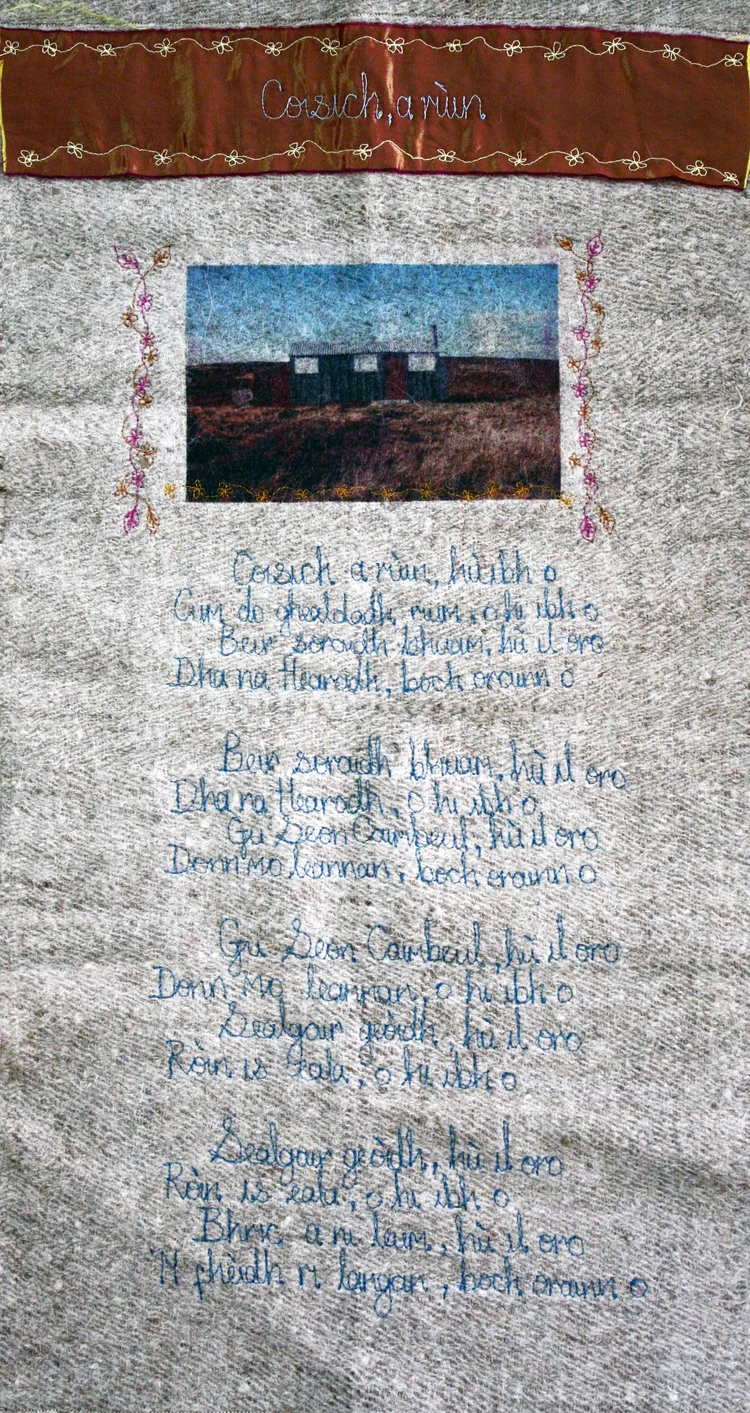 Coisich, a rùin
Coisich a rùin, hù ibh o
Cum do ghealdadh rium, o hi ibh o
Beir soraidh bhuam, hù il oro
Dha na Hearadh, boch orainn o
Beir soraidh bhuam, hù il oro
Dha na Hearadh, o hi ibh o
Gu Seon Caimbeul, hù il oro
Donn mo leannan, boch orainn o
Gu Seon Caimbeul, hù il oro
Donn mo leannan, o hi ibh o
Sealgair geòidh, hù il oro
Ròin is eala, o hi ibh o
Sealgair geòidh, hù il oro
Ròin is eala, o hi ibh o
Bhric a ni leum, hù il oro
'N fhèidh ri langan, boch orainn o